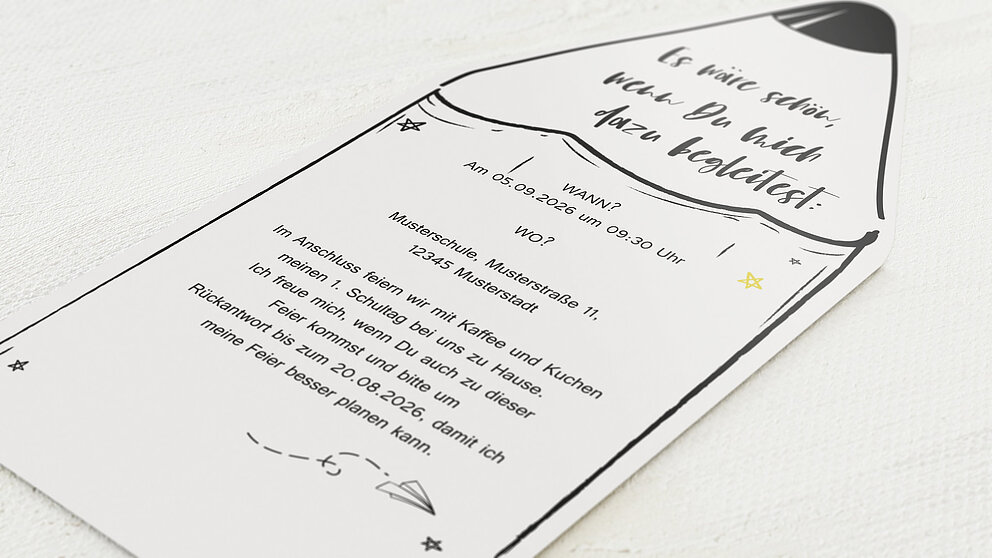 Es wäre schön,
wenn Du mich
dazu begleitest:
WANN?
Am 05.09.2026 um 09:30 Uhr
WO?
Musterschule, Musterstraße 11,
12345 Musterstadt
Im Anschluss feiern wir mit Kaffee und Kuchen
meinen 1. Schultag bei uns zu Hause.
Ich freue mich, wenn Du auch zu dieser
Feier kommst und bitte um
Rückantwort bis zum 20.08.2026, damit ich
meine Feier besser planen kann.